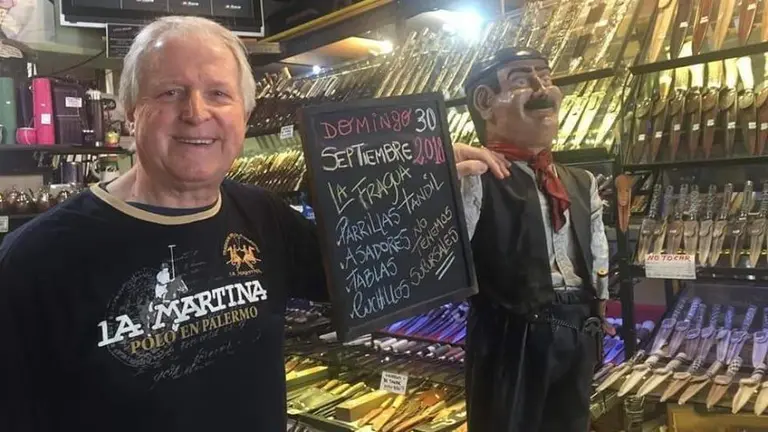 DOMINGO 30
SEPTIEMBRE 2018
LA FRAGUA
PARRILLAS TANDIL
ASADORES NO
TABLAS TENEMOS
CUCHILLOS SUCURSALES
LA MARTINA
POLO EN PALERMO
LA MARTINA
NO TOCAR